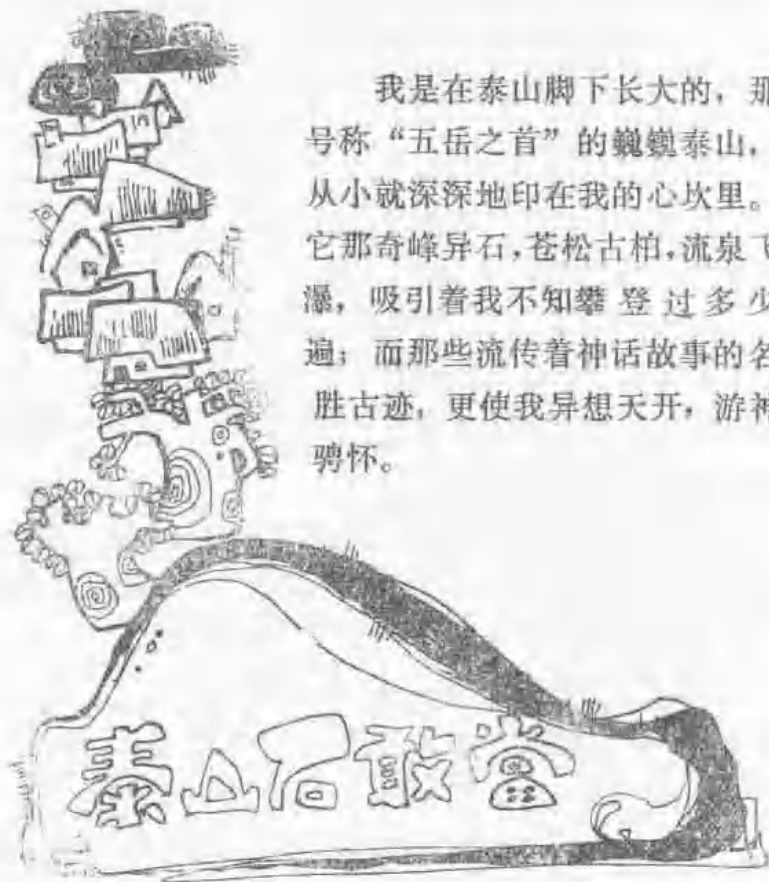 我是在泰山脚下长大的，那
号称“五岳之首”的巍巍泰山，
从小就深深地印在我的心坎里。
它那奇峰异石，苍松古柏，流泉飞
瀑，吸引着我不知攀登过多少
遍；而那些流传着神话故事的名
胜古迹，更使我异想天开，游神
骋怀。
泰山石敢當